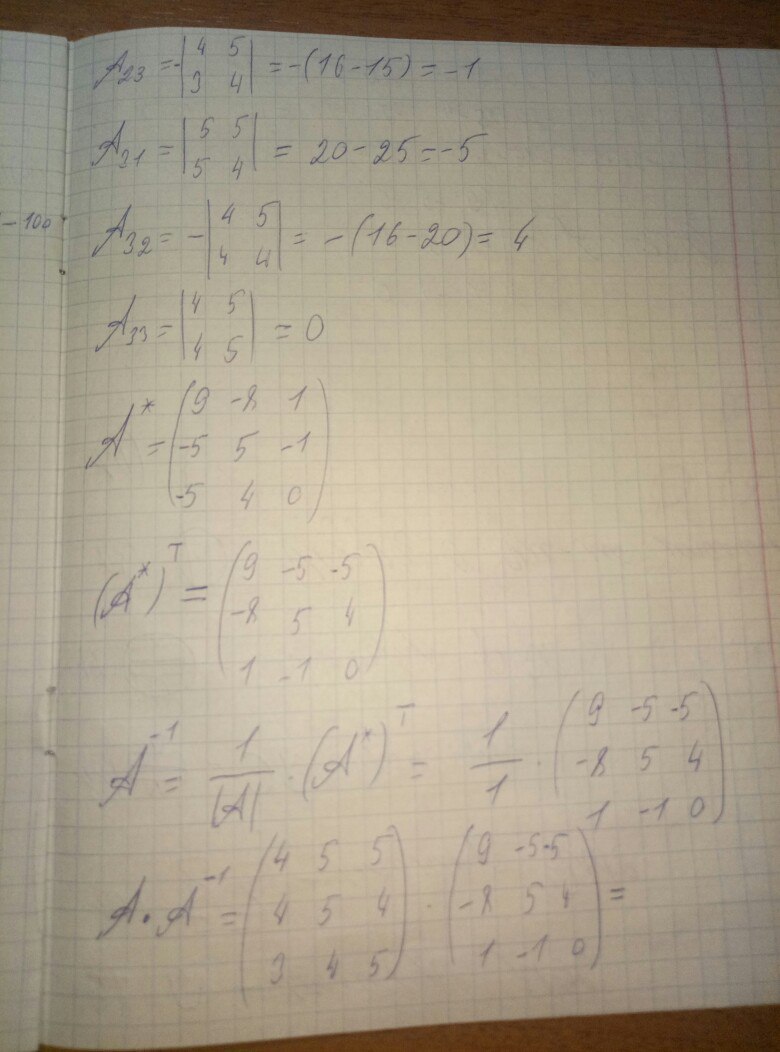 A₂₃ = -|4 5; 3 4| = -(16-15) = -1
A₃₁ = |5 5; 5 4| = 20-25 = -5
-100
A₃₂ = -|4 5; 4 4| = -(16-20) = 4
A₃₃ = |4 5; 4 5| = 0
A* = (9 -8 1; -5 5 -1; -5 4 0)
(A*)ᵀ = (9 -5 -5; -8 5 4; 1 -1 0)
A⁻¹ = 1/|A| · (A*)ᵀ = 1/1 · (9 -5 -5; -8 5 4; 1 -1 0)
A · A⁻¹ = (4 5 5; 4 5 4; 3 4 5) · (9 -5 -5; -8 5 4; 1 -1 0) =